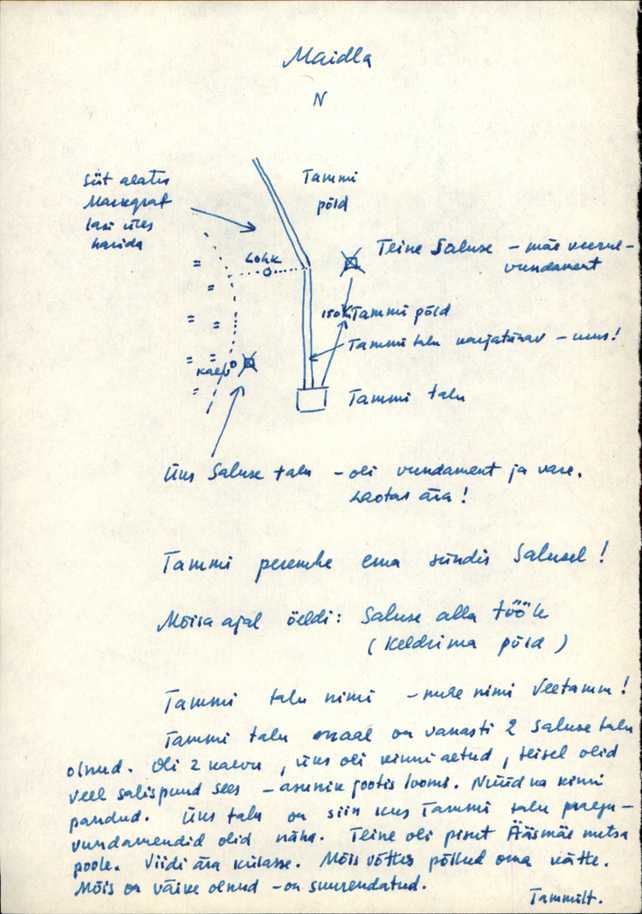 Maidla
N
Siit alates
Markgraf
lasi üles
harida
Tammi
põld
Lohk
Teine Saluse - mäe veerul -
vundament
150
Tammi põld
Tammi talu karjatänav - uus!
Kaev
Tammi talu
Üks Saluse talu - oli vundament ja vare.
Laotas ära!
Tammi peremehe ema sündis Salusel!
Mõisa ajal öeldi: Saluse alla tööle
(Keldrima põld)
Tammi talu nimi - muite nimi Veetamm!
Tammi talu maal on vanasti 2 Saluse talu
olnud. Oli 2 kaevu, üks oli kinni aetud, teisel olid
veel salispuud sees - asunik jootis loomi. Nüüd ka kinni
pandud. Üks talu on siin kus Tammi talu praegu -
vundamendid olid näha. Teine oli pisut Ääsmäe metsa
poole. Viidi ära külasse. Mõis võttis põllud oma kätte.
Mõis on väike olnud - on suurendatud.
Tammilt.